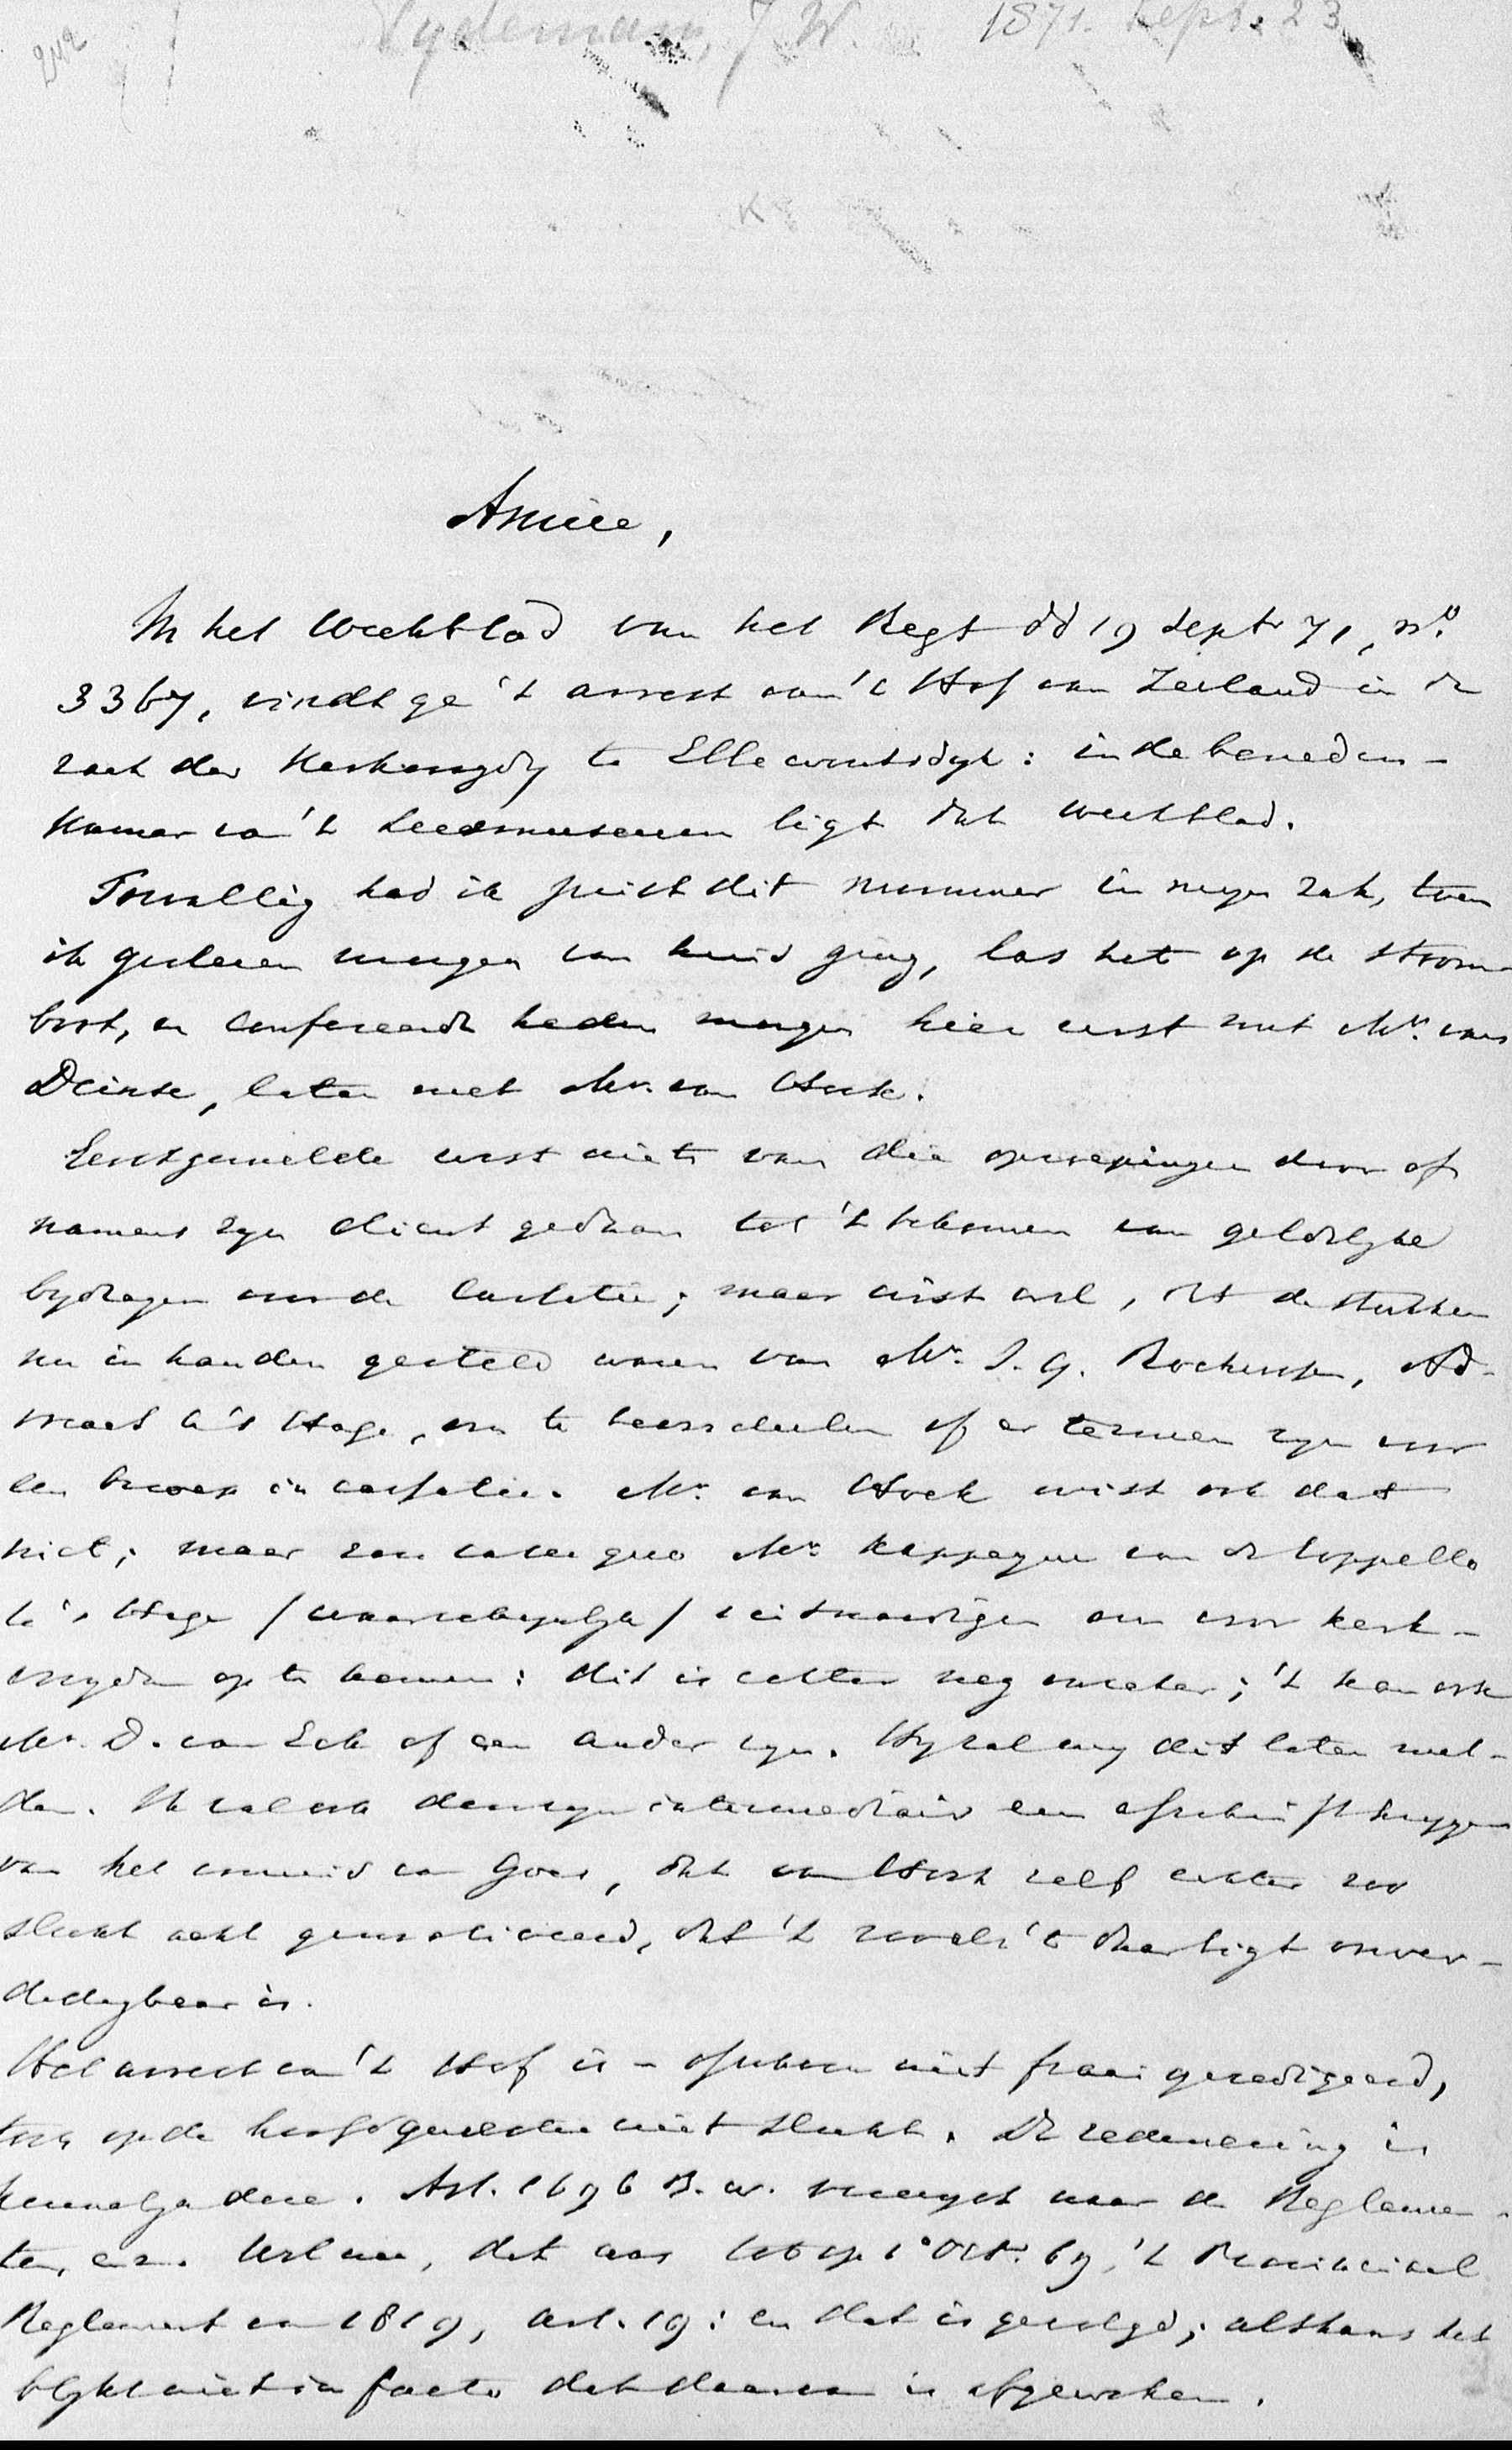 242
Tydeman, J. W. 1871. Sept. 23
Amice,
In het Weekblad van het Regt dd 19 Septr 71, no.
3367, vindt ge 't arrest van 't Hof van Zeeland in de
zaak der Kerkvoogdij te Ellewoutsdijk: in de beneden-
kamer van 't Leesmuseum ligt dat weekblad.
Toevallig had ik juist dit nummer in mijn zak, toen
ik gisteren morgen van huis ging, las het op de stoom-
boot, en confereerde heden morgen hier eerst met Mr. van
Deinse, later met Mr. van Hoek.
Eerstgemelde wist niets van die oproepingen door of
namens zijn client gedaan tot 't bekomen van geldelijke
bijdragen voor de cassatie; maar wist wel, dat de stukken
nu in handen gesteld waren van Mr. J. G. Rochussen, Ad-
vocaat te 's Hage, om te beoordeelen of er termen zijn voor
een beroep in cassatie. Mr. van Hoek wist ook dat
niet; maar zou in casu quo Mr. Kappeyne van de Coppello
te 's Hage (waarschijnlijk) uitnoodigen om voor kerk-
voogden op te komen: dit is echter nog onzeker; 't kan ook
Mr. D. van Eck of een ander zijn. Hij zal mij dit laten mel-
den. Ik zal ook door zijn intermediair een afschrift krijgen
van het vonnis van Goes, dat van Hoek zelf echter zoo
slecht acht gemotiveerd, dat 't zooals 't daar ligt onver-
dedigbaar is.
Het arrest van 't Hof is – ofschoon niet fraai geredigeerd,
toch op de hoofdquaestie niet slecht. De redeneering is
kennelijk deze. Art. 1696 B.W. verwijst naar de Reglemen-
ten, enz. Welnu, dat was tot op 1o Octr. 69, 't Provinciaal
Reglement van 1819, art. 19: en dat is gevolgd; althans het
blijkt niet in facto dat daarvan is afgeweken.